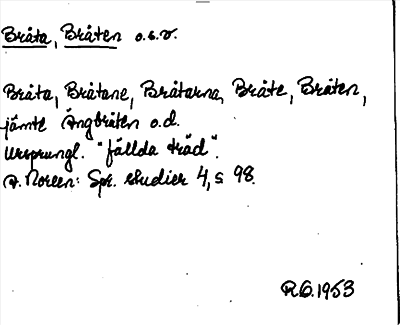 Bråta, Bråten o.s.v.
Bråta, Bråtane, Bråtarna, Bråte, Bråten,
jämte Ängbråten o.d.
Ursprungl. "fällda träd".
A. Noreen: Spr. studier 4, s 98.
R.G. 1953